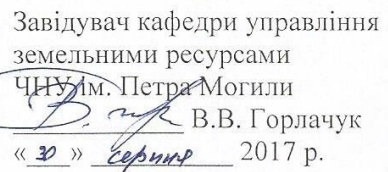 Завідувач кафедри управління
земельними ресурсами
ЧНУ ім. Петра Могили
В.В. Горлачук
«30» серпня 2017 р.